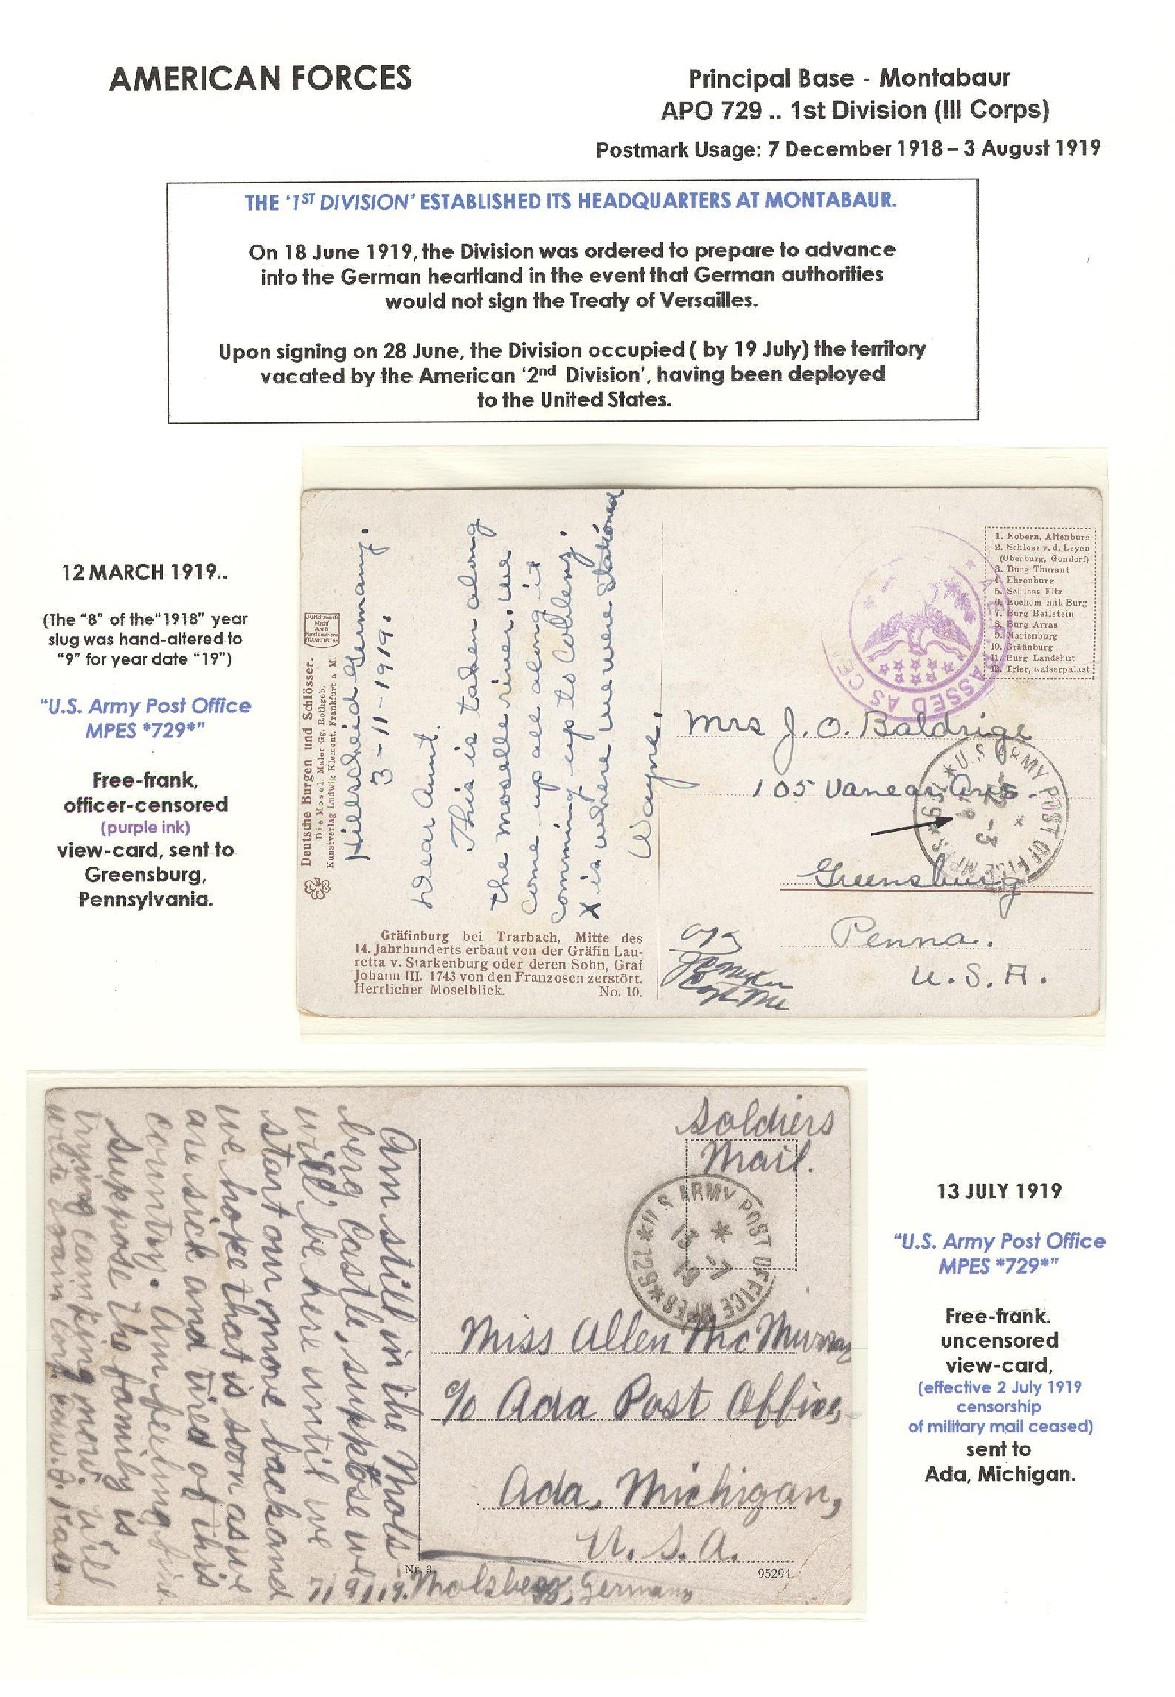 AMERICAN FORCES
Principal Base - Montabaur
APO 729 .. 1st Division (III Corps)
Postmark Usage: 7 December 1918 – 3 August 1919
THE '1ST DIVISION' ESTABLISHED ITS HEADQUARTERS AT MONTABAUR.
On 18 June 1919, the Division was ordered to prepare to advance
into the German heartland in the event that German authorities
would not sign the Treaty of Versailles.
Upon signing on 28 June, the Division occupied ( by 19 July) the territory
vacated by the American '2nd Division', having been deployed
to the United States.
12 MARCH 1919..
(The "8" of the "1918" year
slug was hand-altered to
"9" for year date "19")
"U.S. Army Post Office
MPES *729*"
Free-frank,
officer-censored
(purple ink)
view-card, sent to
Greensburg,
Pennsylvania.
Deutsche Burgen und Schlösser.
Hillscheid Germany.
3-11-1919.
Dear Aunt.
This is taken along
the moselle river, we
come up all along it
comming up to Coblenz.
X is where we were stationed
Wayne.
Gräfinburg bei Trarbach, Mitte des
14. Jahrhunderts erbaut von der Gräfin Lau-
retta v. Starkenburg oder deren Sohn, Graf
Johann III. 1743 von den Franzosen zerstört.
Herrlicher Moselblick. No. 10.
1. Kobern, Altenburg
2. Schloss v. d. Leyen
(Oberburg, Gondorf)
3. Burg Thurant
4. Ehrenburg
5. Schloss Eltz
6. Kochem mit Burg
7. Burg Beilstein
8. Burg Arras
9. Marienburg
10. Gräfinburg
11. Burg Landshut
12. Trier, Kaiserpalast
A.E.F. PASSED AS CENSORED
Mrs J. O. Baldrige
105 Vanear Ave.
Greensburg
Penna.
U.S.A.
U.S. ARMY POST OFFICE MPES *729*
12 -3
19
Soldiers
Mail.
U.S ARMY POST OFFICE MPES *729*
13 -7
19
Miss Allen McMurray
c/o Ada Post Office,
Ada, Michigan,
U. S. A.
Nr. 3
95291
Am still in the Mols
berg Castle, suppose we
will be here until we
start our move back and
we hope that is soon as we
are sick and tired of this
country. Am feeling fine
suppose the family is
trying camping now. Will
write again
7/9/19. Molsberg, Germany
13 JULY 1919
"U.S. Army Post Office
MPES *729*"
Free-frank.
uncensored
view-card,
(effective 2 July 1919
censorship
of military mail ceased)
sent to
Ada, Michigan.